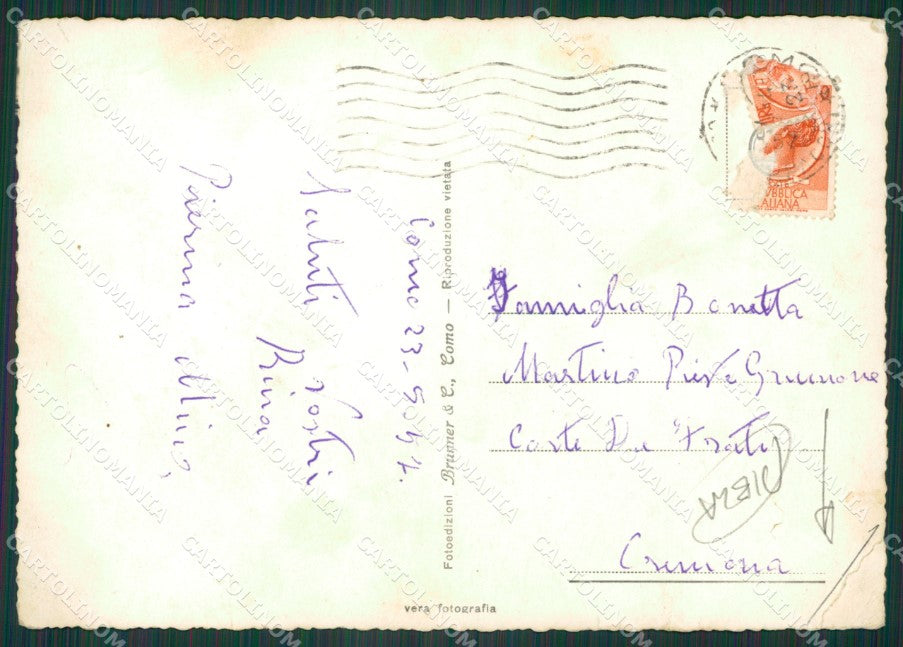 Como 23-5957.
Saluti Vostri
Rina
Pierina Mino,
Fotoedizioni Brunner & C., Como — Riproduzione vietata
vera fotografia
PUBBLICA
ITALIANA
Famiglia Bonetta
Martino Pieve Grumone
Corte De Frati
Cremona
CARTOLINOMANIA